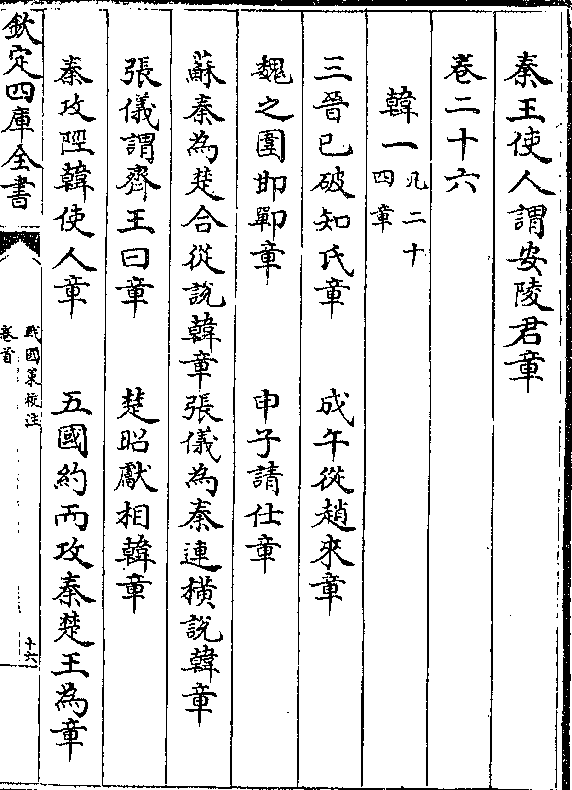 秦王使人謂安陵君章
卷二十六
韓一 凡二十四章
三晉已破知氏章 成午從趙來章
魏之圍邯鄲章 申子請仕章
蘇秦為楚合從說韓章張儀為秦連橫說韓章
張儀謂齊王曰章 楚昭獻相韓章
秦攻陘韓使人章 五國約而攻秦楚王為章
欽定四庫全書
戰國策校注
卷首
十六